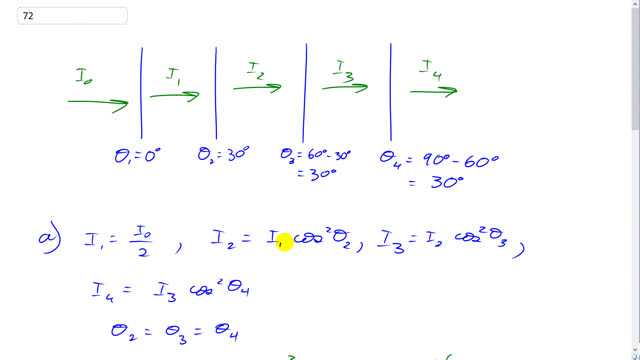 72
I₀ I₁ I₂ I₃ I₄
θ₁ = 0° θ₂ = 30° θ₃ = 60° - 30° θ₄ = 90° - 60°
= 30° = 30°
a) I₁ = I₀/2 , I₂ = I₁ cos²θ₂ , I₃ = I₂ cos²θ₃ ,
I₄ = I₃ cos²θ₄
θ₂ = θ₃ = θ₄